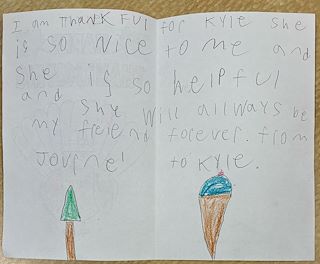 I am THANKFUl for KYlE she
is so NICE to me and
she is so helPful
and she will allways be
my freiend forever. from
Jovrnei to KYlE.